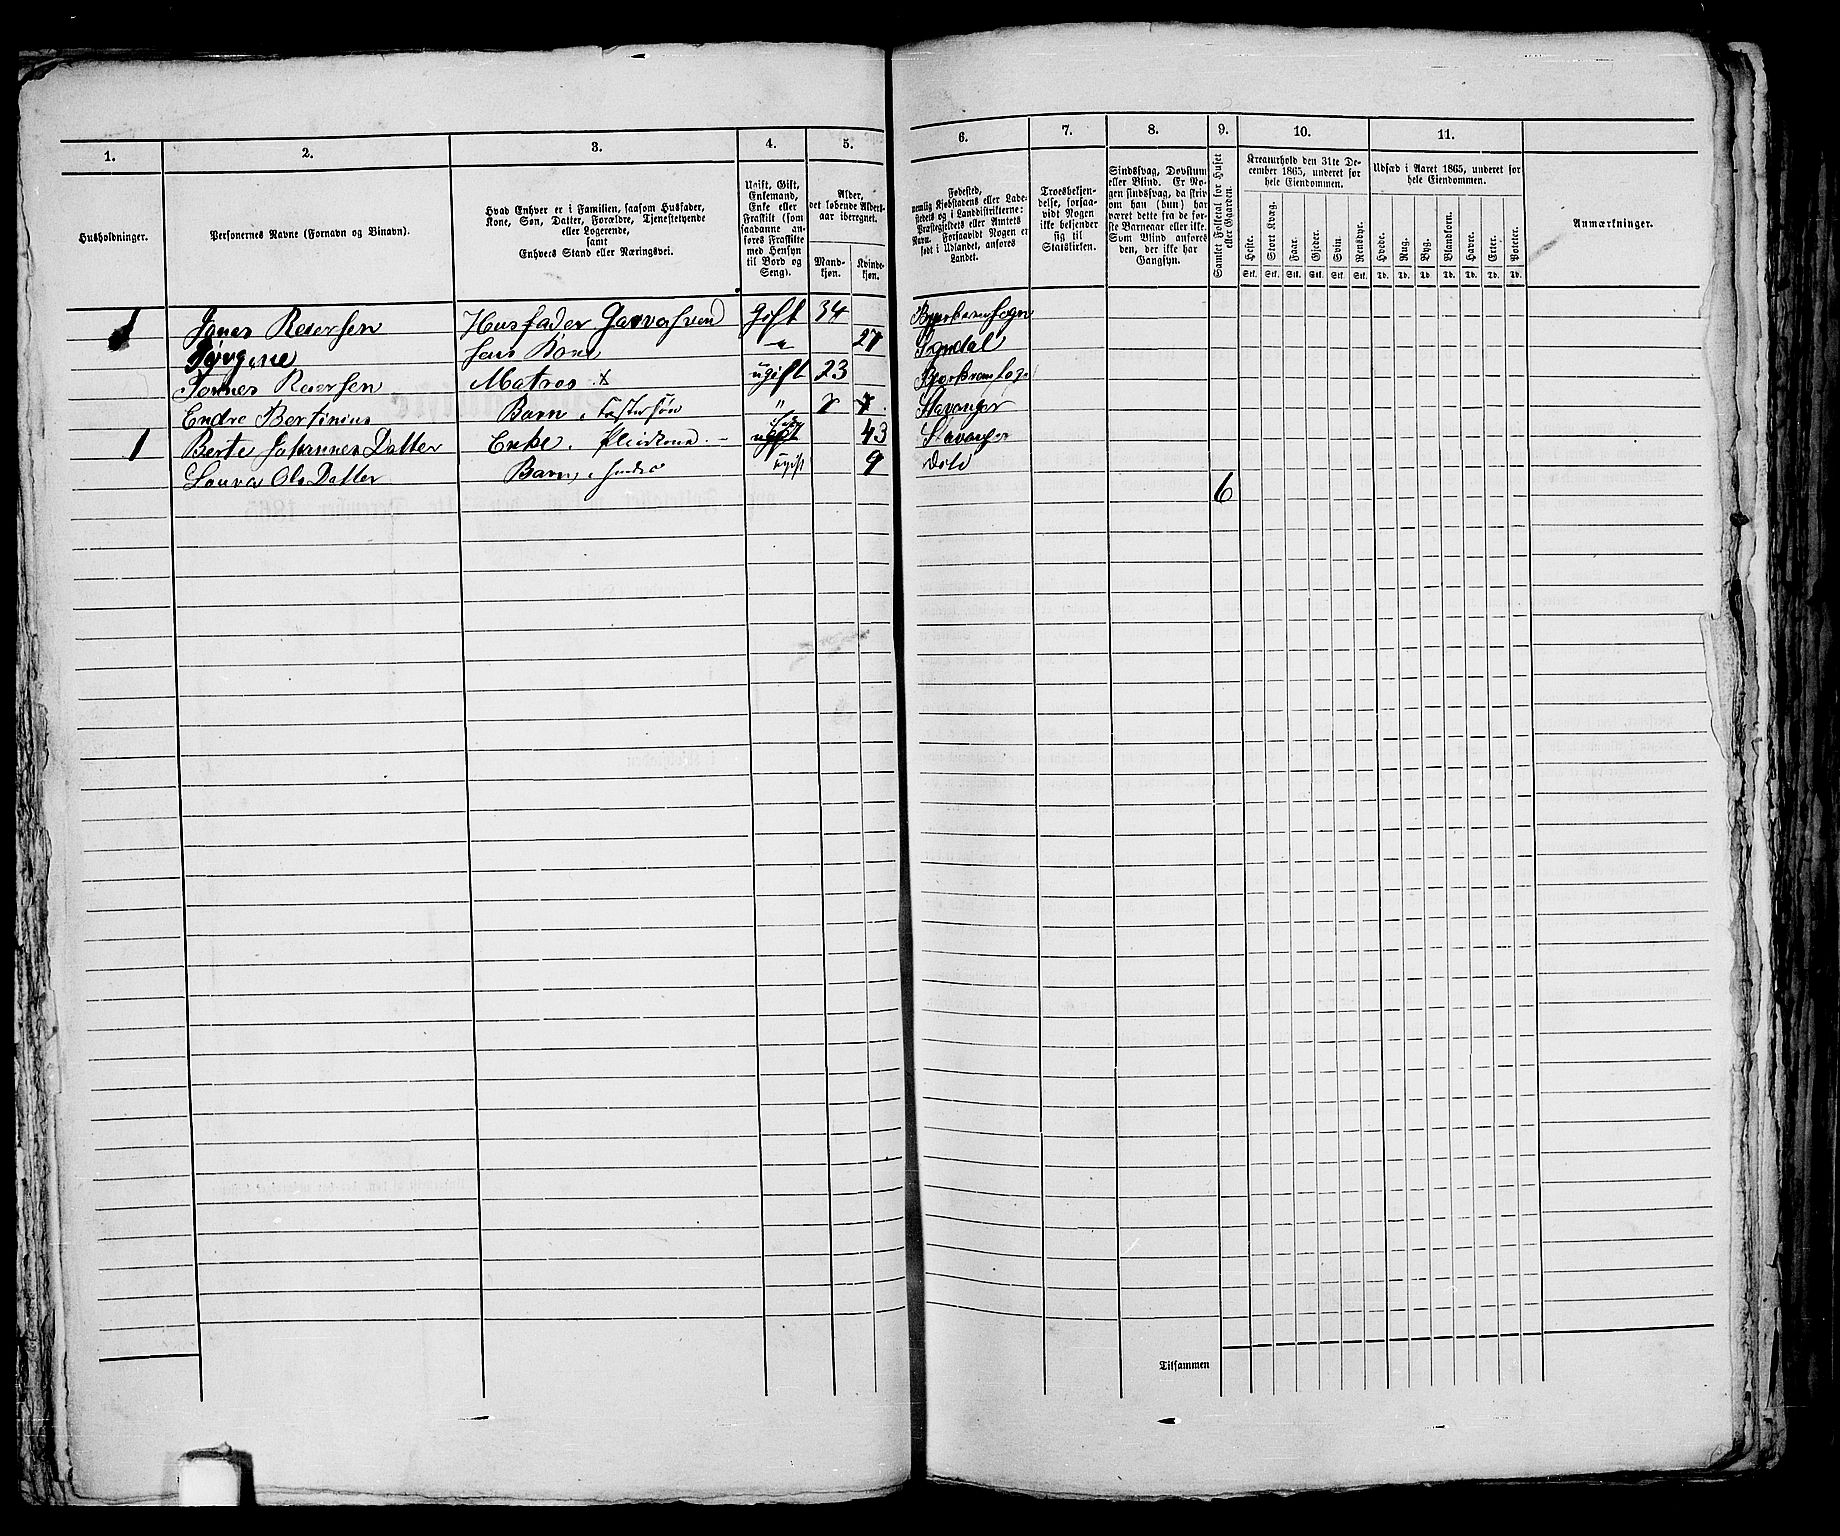 1. 2. 3. 4. 5. 6. 7. 8. 9. 10. 11.
Husholdninger.
Personernes Navne (Fornavn og Binavn).
Hvad Enhver er i Familien, saasom Husfader,
Kone, Søn, Datter, Forældre, Tjenestetyende
eller Logerende,
samt
Enhvers Stand eller Næringsvei.
Ugift, Gift,
Enkemand,
Enke eller
Fraskilt (som
saadanne an-
føres Fraskilte
med Hensyn
til Bord og
Seng).
Alder,
det løbende Alders-
aar iberegnet.
Mand-
kjøn.
Kvinde-
kjøn.
Fødested,
nemlig Kjøbstadens eller Lade-
stedets og i Landdistrikterne:
Præstegjeldets eller Amtets
Navn. Forsaavidt Nogen er
født i Udlandet, anføres
Landet.
Troesbekjen-
delse, forsaa-
vidt Nogen
ikke bekjender
sig til
Statskirken.
Sindssvag, Døvstum
eller Blind. Er No-
gen sindssvag, da skriv
om han (hun) har
været dette fra de før-
ste Barneaar eller ikke.
Som Blind anføres
den, der ikke har
Gangsyn.
Samlet Folketal for Huset
eller Gaarden.
Kreaturhold den 31te De-
cember 1865, underet for
hele Eiendommen.
Heste. Stort Kvæg. Faar. Gjeder. Svin. Rensdyr.
Stk. Stk. Stk. Stk. Stk. Stk.
Udsæd i Aaret 1865, underet for
hele Eiendommen.
Hvede. Rug. Byg. Blandkorn. Havre. Erter. Poteter.
Td. Td. Td. Td. Td. Td. Td.
Anmærkninger.
1 Jonas Reiersen Husfader Garversvend Gift 34 Bjerkremsogn
Jørgine Hans Kone " 27 Sogndal
Tønnes Reiersen Matros x ugift 23 Bjerkremsogn
Endre Bertinius Barn, Fostersøn " 7 Stavanger
1 Berte Johannes Datter Enke. 43 Stavanger
Laura Ols Datter Barn, hendes ugift 9 Dito
6
Tilsammen